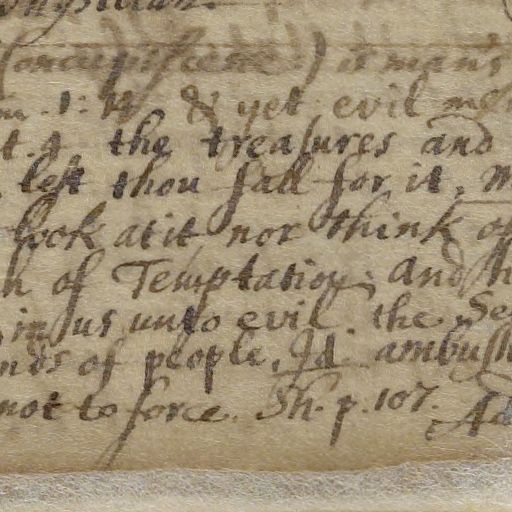 (concupiscence) is man's
m. 1: 14 & yet evil men
t. 4. the treasures and
lest thou fall for it, M
look at it nor think of
h of Temptation; and th
in us unto evil. the Se
nds of people, Id. ambush
not to force. Sh. p. 107. Ad